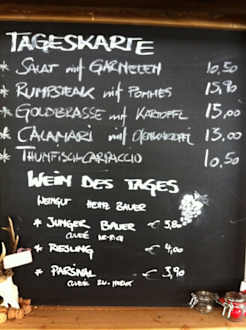 TAGESKARTE
* SALAT mit GARNELEN 10,50
* RUMPSTEAK mit POMMES 15,90
* GOLDBRASSE mit KARTOFFL 15,00
* CALAMARI mit OFENKARTOFFL 13,00
* THUNFISCH-CARPACCIO 10,50
WEIN DES TAGES
WEINGUT HEINZ BAUER
* JUNGER BAUER € 3,80
CUVÉE
* RIESLING € 4,00
* PARSIVAL € 3,90
CUVÉE